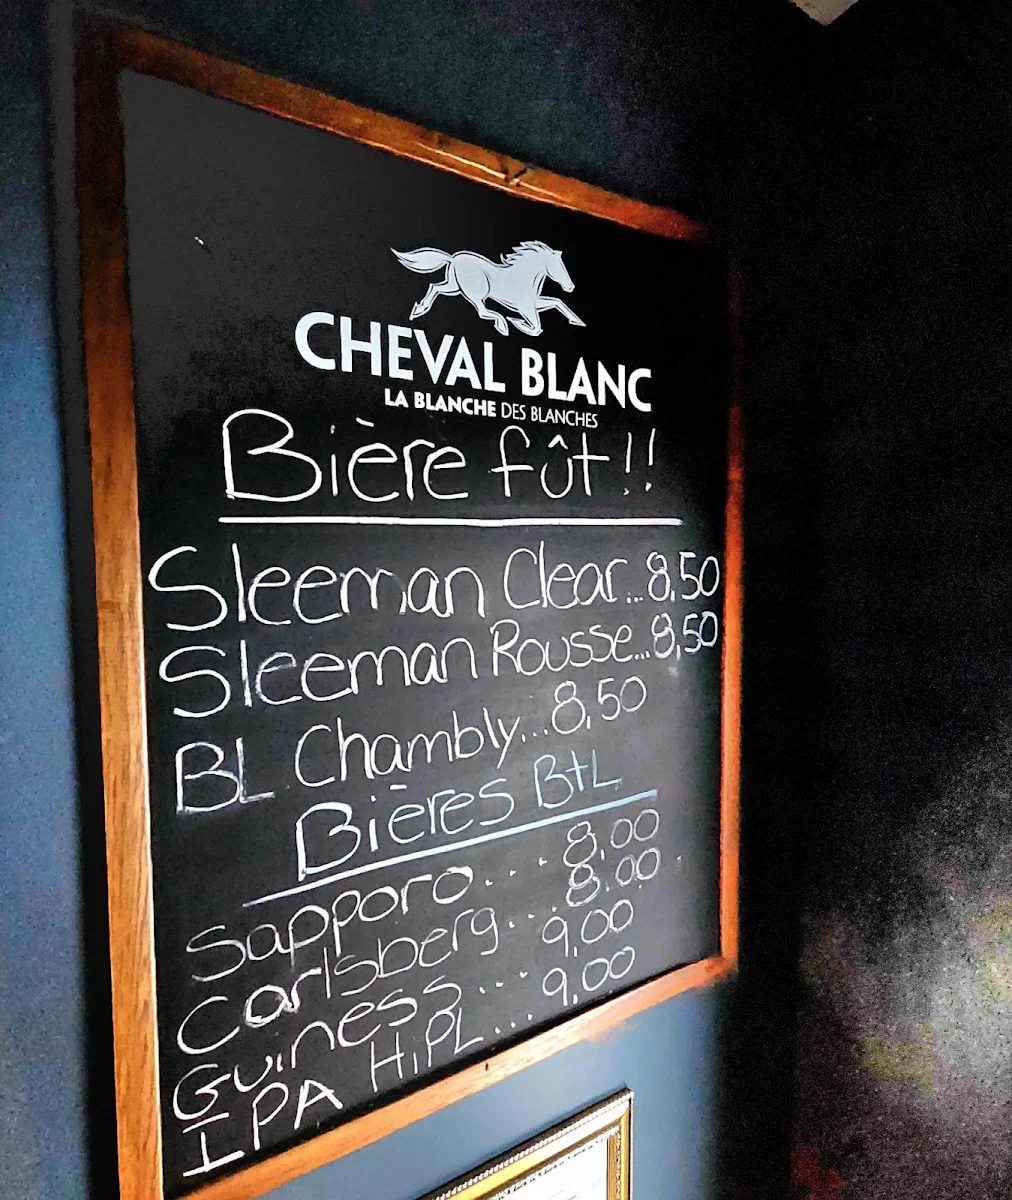 CHEVAL BLANC
LA BLANCHE DES BLANCHES
Bière fût!!
Sleeman Clear...8,50
Sleeman Rousse...8,50
BL Chambly...8,50
Bières BtL
Sapporo...8,00
Carlsberg...8.00
Guiness...9,00
IPA HiPL...9,00